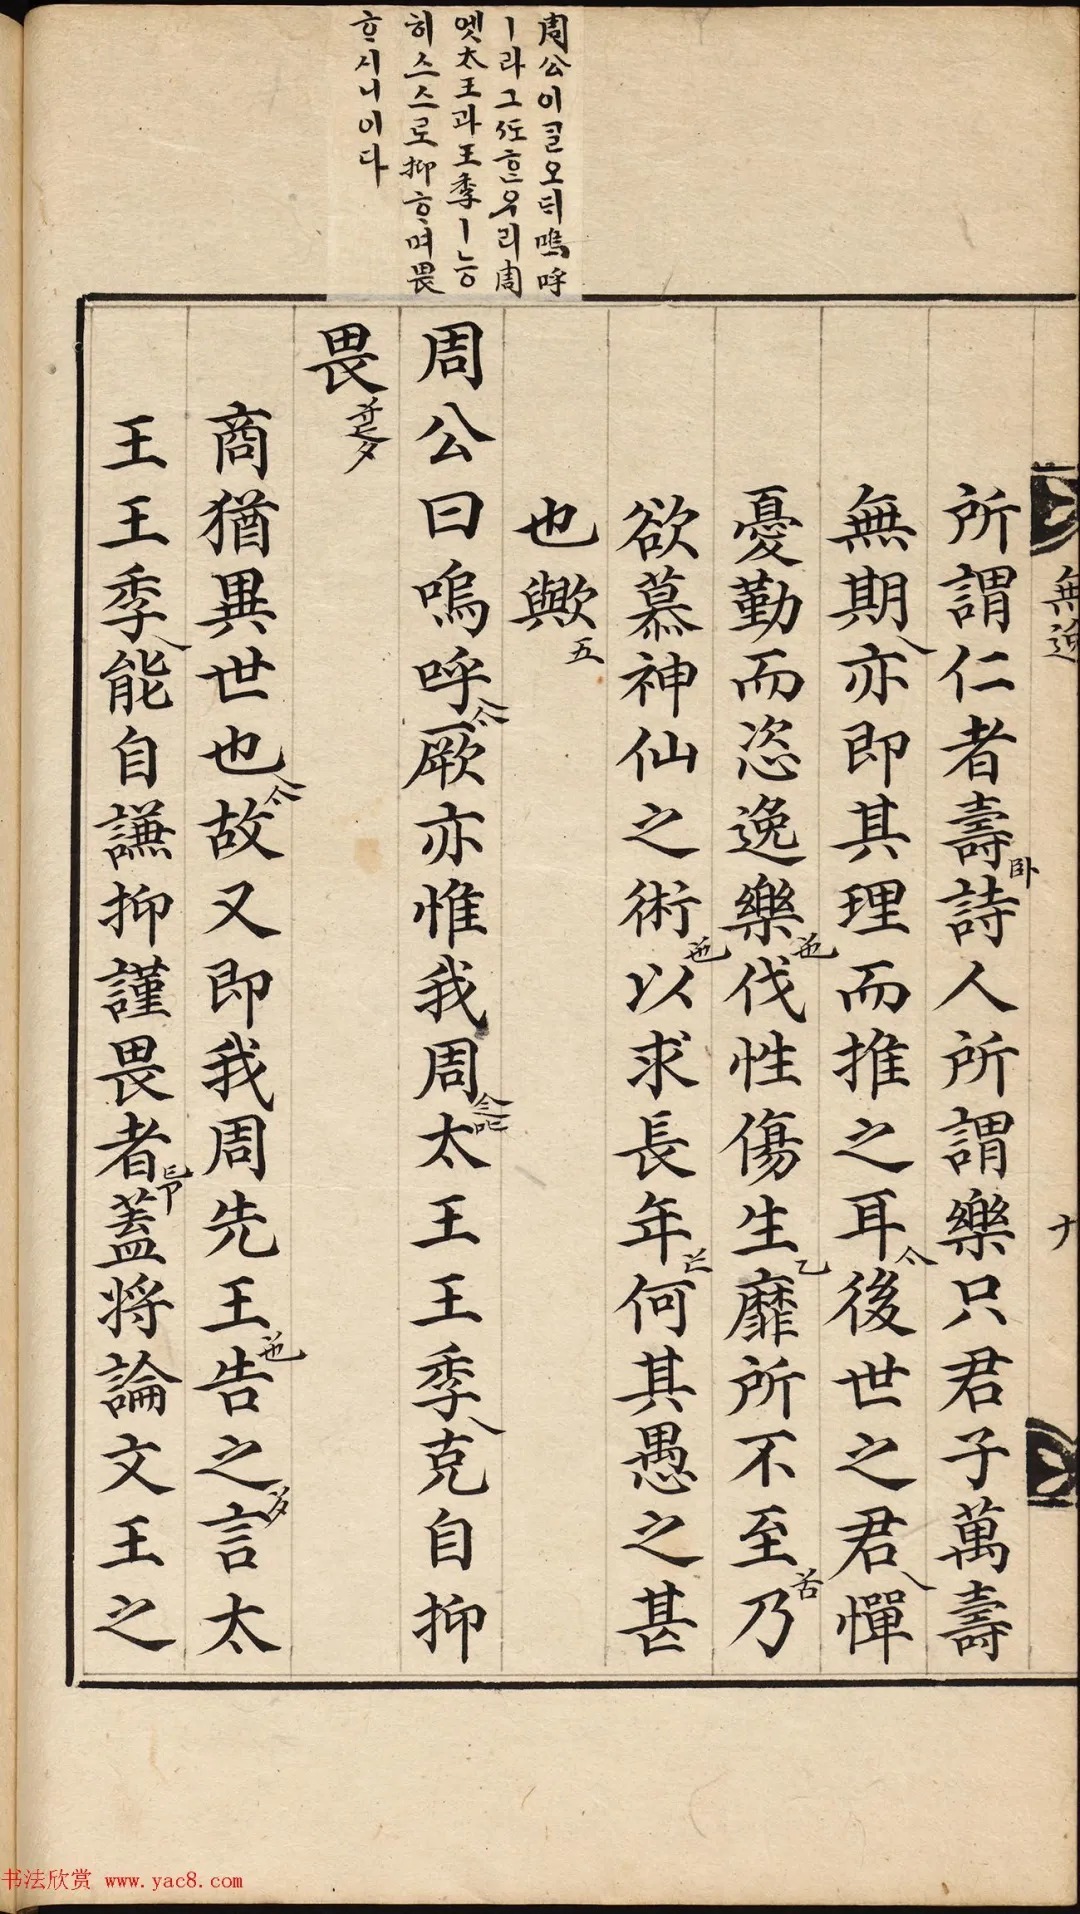 周公이ᄀᆞᆯ오ᄃᆡ嗚呼
ㅣ라그ᄯᅩᄒᆞᆫ우리周
엣太王과王季ㅣ능
히스스로抑ᄒᆞ며畏
ᄒᆞ시니이다
無逸
十
所謂仁者壽卧詩人所謂樂只君子萬壽
無期亦即其理而推之耳後世之君憚
憂勤而恣逸樂伐性傷生乙靡所不至乃
欲慕神仙之術以求長年何其愚之甚
也歟五
周公曰嗚呼厥亦惟我周太王王季克自抑
畏
商猶異世也故又即我周先王告之言太
王王季能自謙抑謹畏者蓋將論文王之
书法欣赏 www.yac8.com